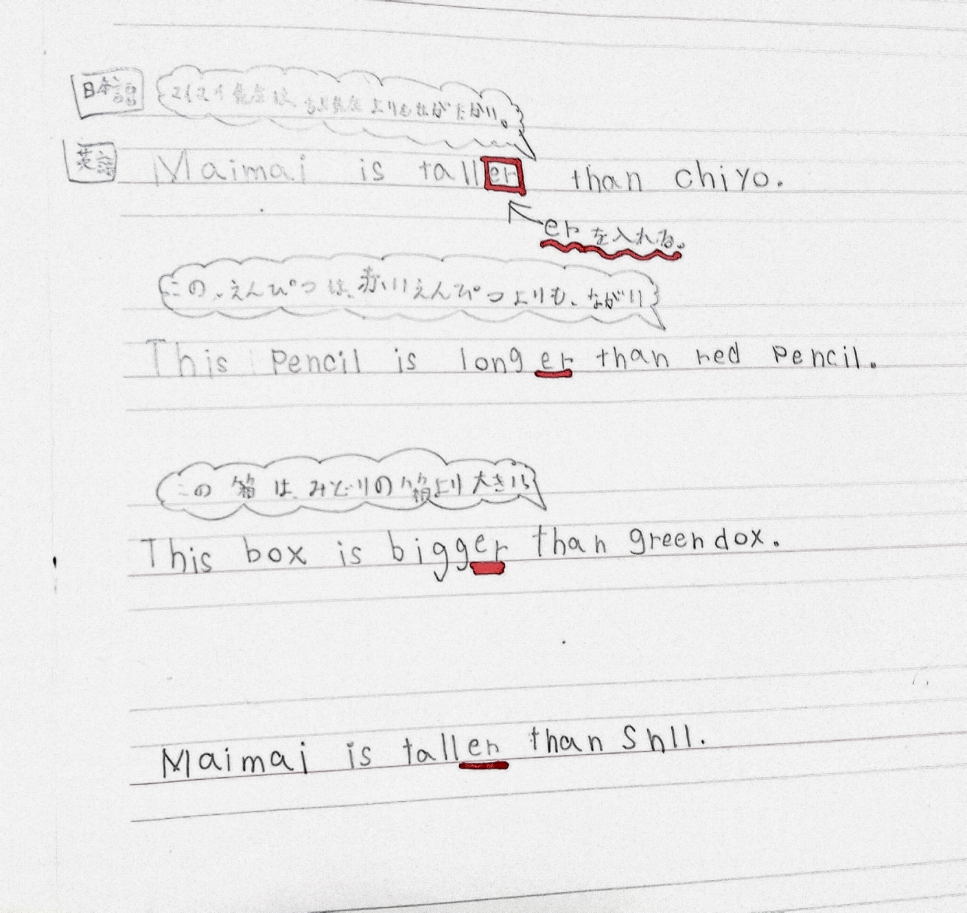 日本語 マイマイ先生は、ちよ先生よりもせがたかい。
英語 Maimai is taller than chiyo.
erを入れる。
この、えんぴつは、赤いえんぴつよりも、ながい
This Pencil is longer than red Pencil.
この箱は、みどりの箱より大きい
This box is bigger than green dox.
Maimai is taller than Shll.